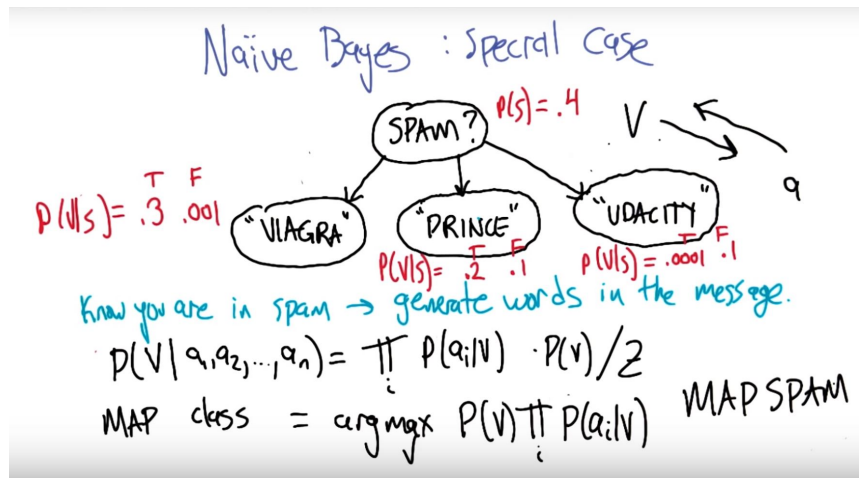 Naïve Bayes : Special Case
P(s) = .4
SPAM?
V
a
T F
P(V|s) = .3 .001
"VIAGRA"
"PRINCE"
"UDACITY"
T F
P(V|s) = .2 .1
T F
P(V|s) = .0001 .1
Know you are in spam → generate words in the message.
P(V|a₁,a₂,...,aₙ) = ∏ᵢ P(aᵢ|V) · P(V)/Z
MAP class = argmax P(V) ∏ᵢ P(aᵢ|V)
MAP SPAM